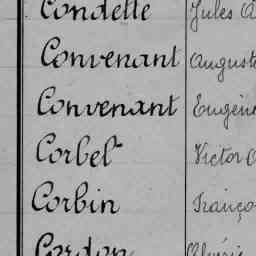 Condette Jules A
Convenant Auguste
Convenant Eugène
Corbel Victor
Corbin Franço
Cordon